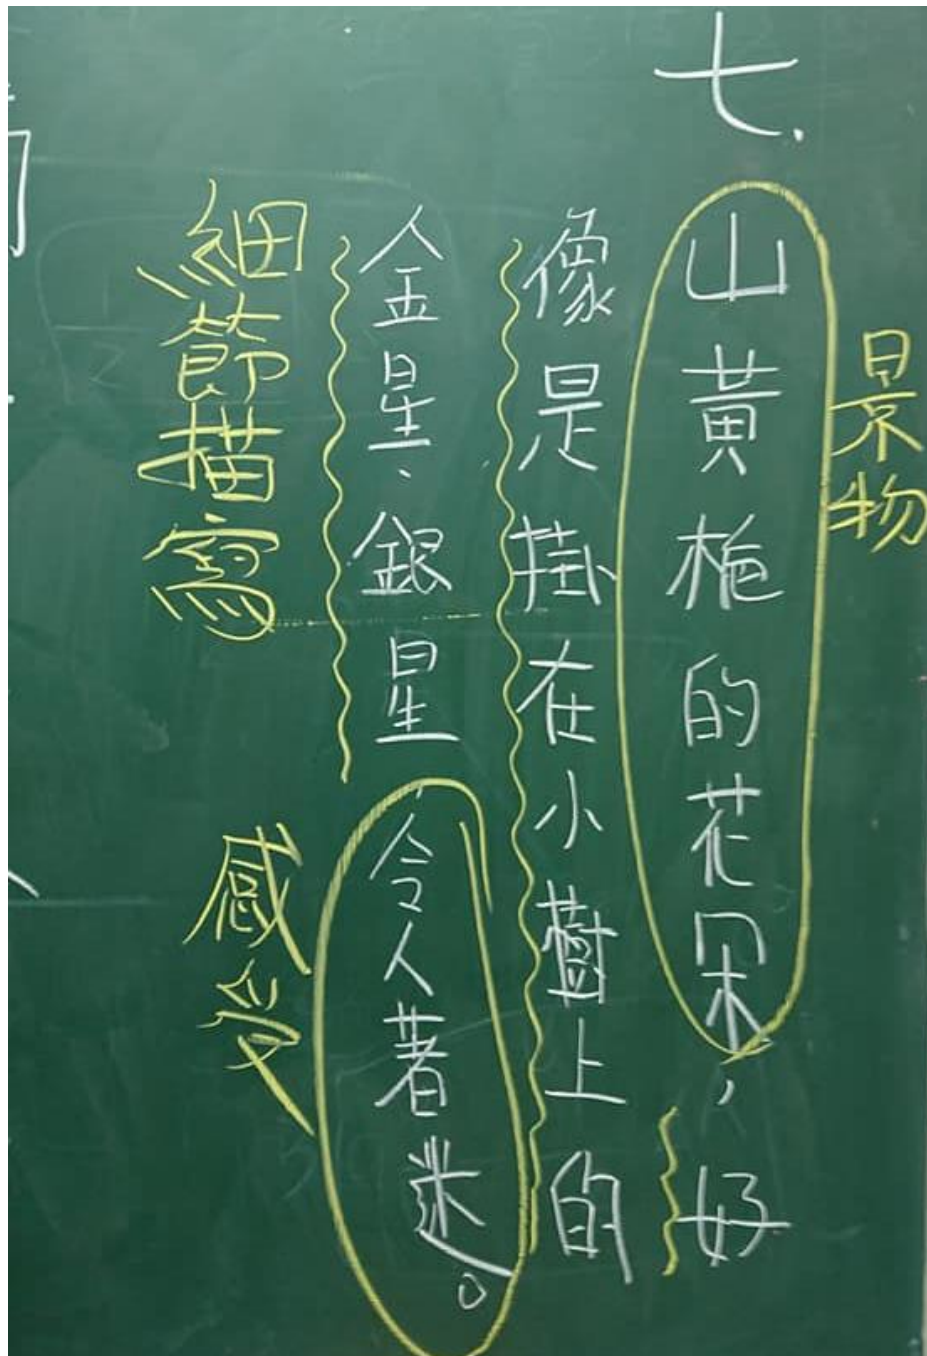 七.
景物
山黃梔的花朵,好
像是掛在小樹上的
金星、銀星,令人著迷。
細節描寫
感受